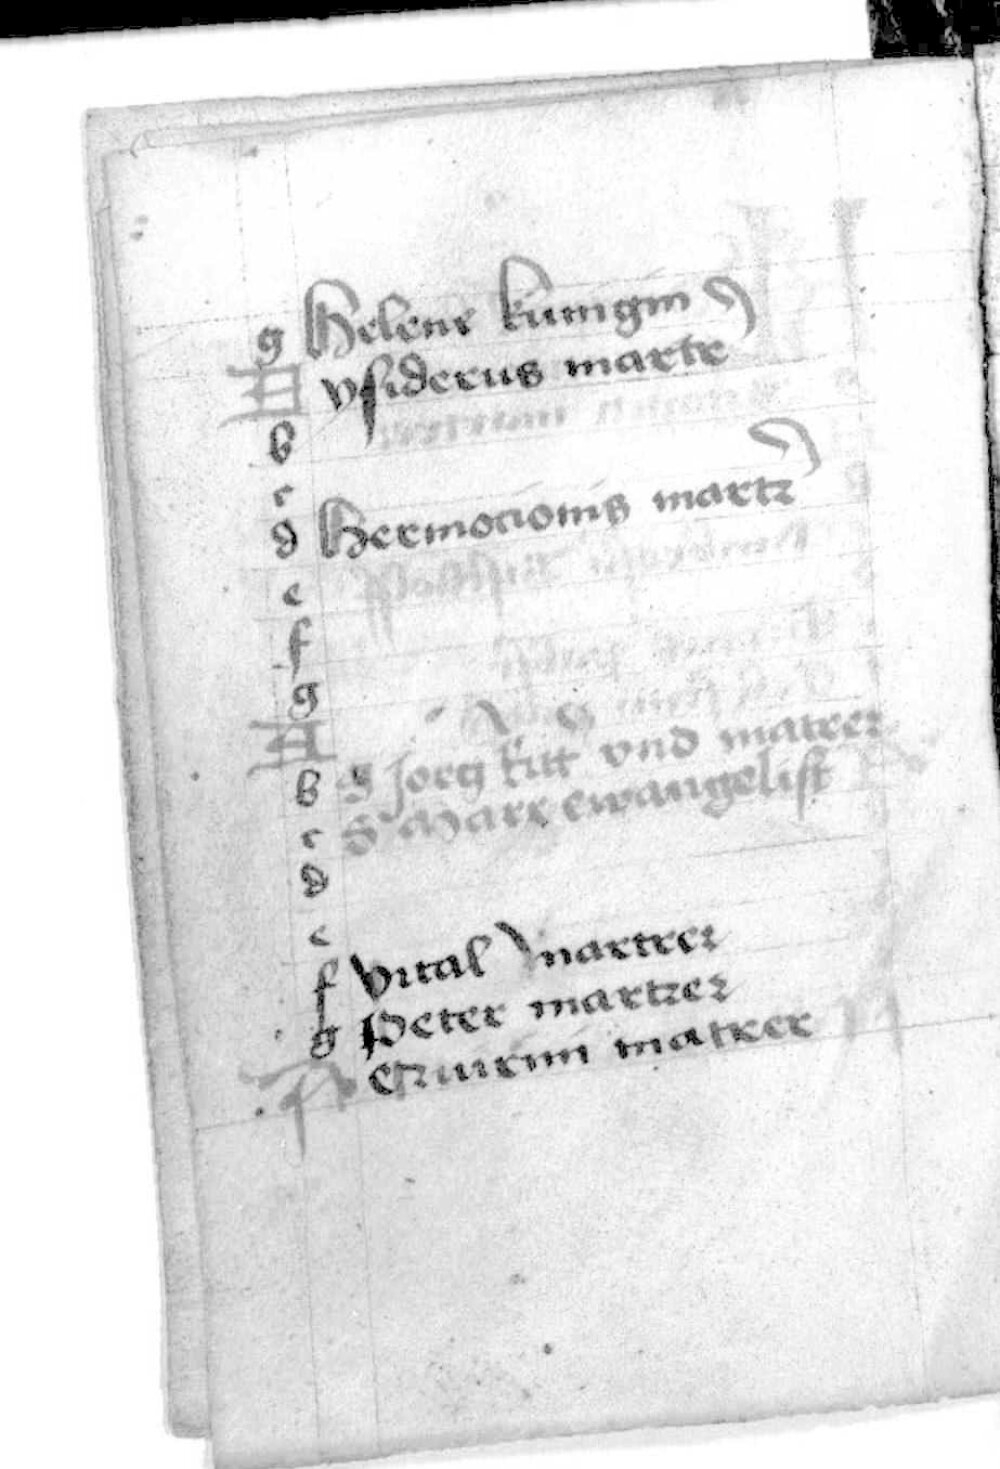 g Helene kunigin
A ysiderus martr
b
c
d Hermocionis martr
e
f
g
A
b S Jorg ritt vnd matrer
c S Marx ewangelist
d
e
f Vital martrer
g Peter martrer
A matrer